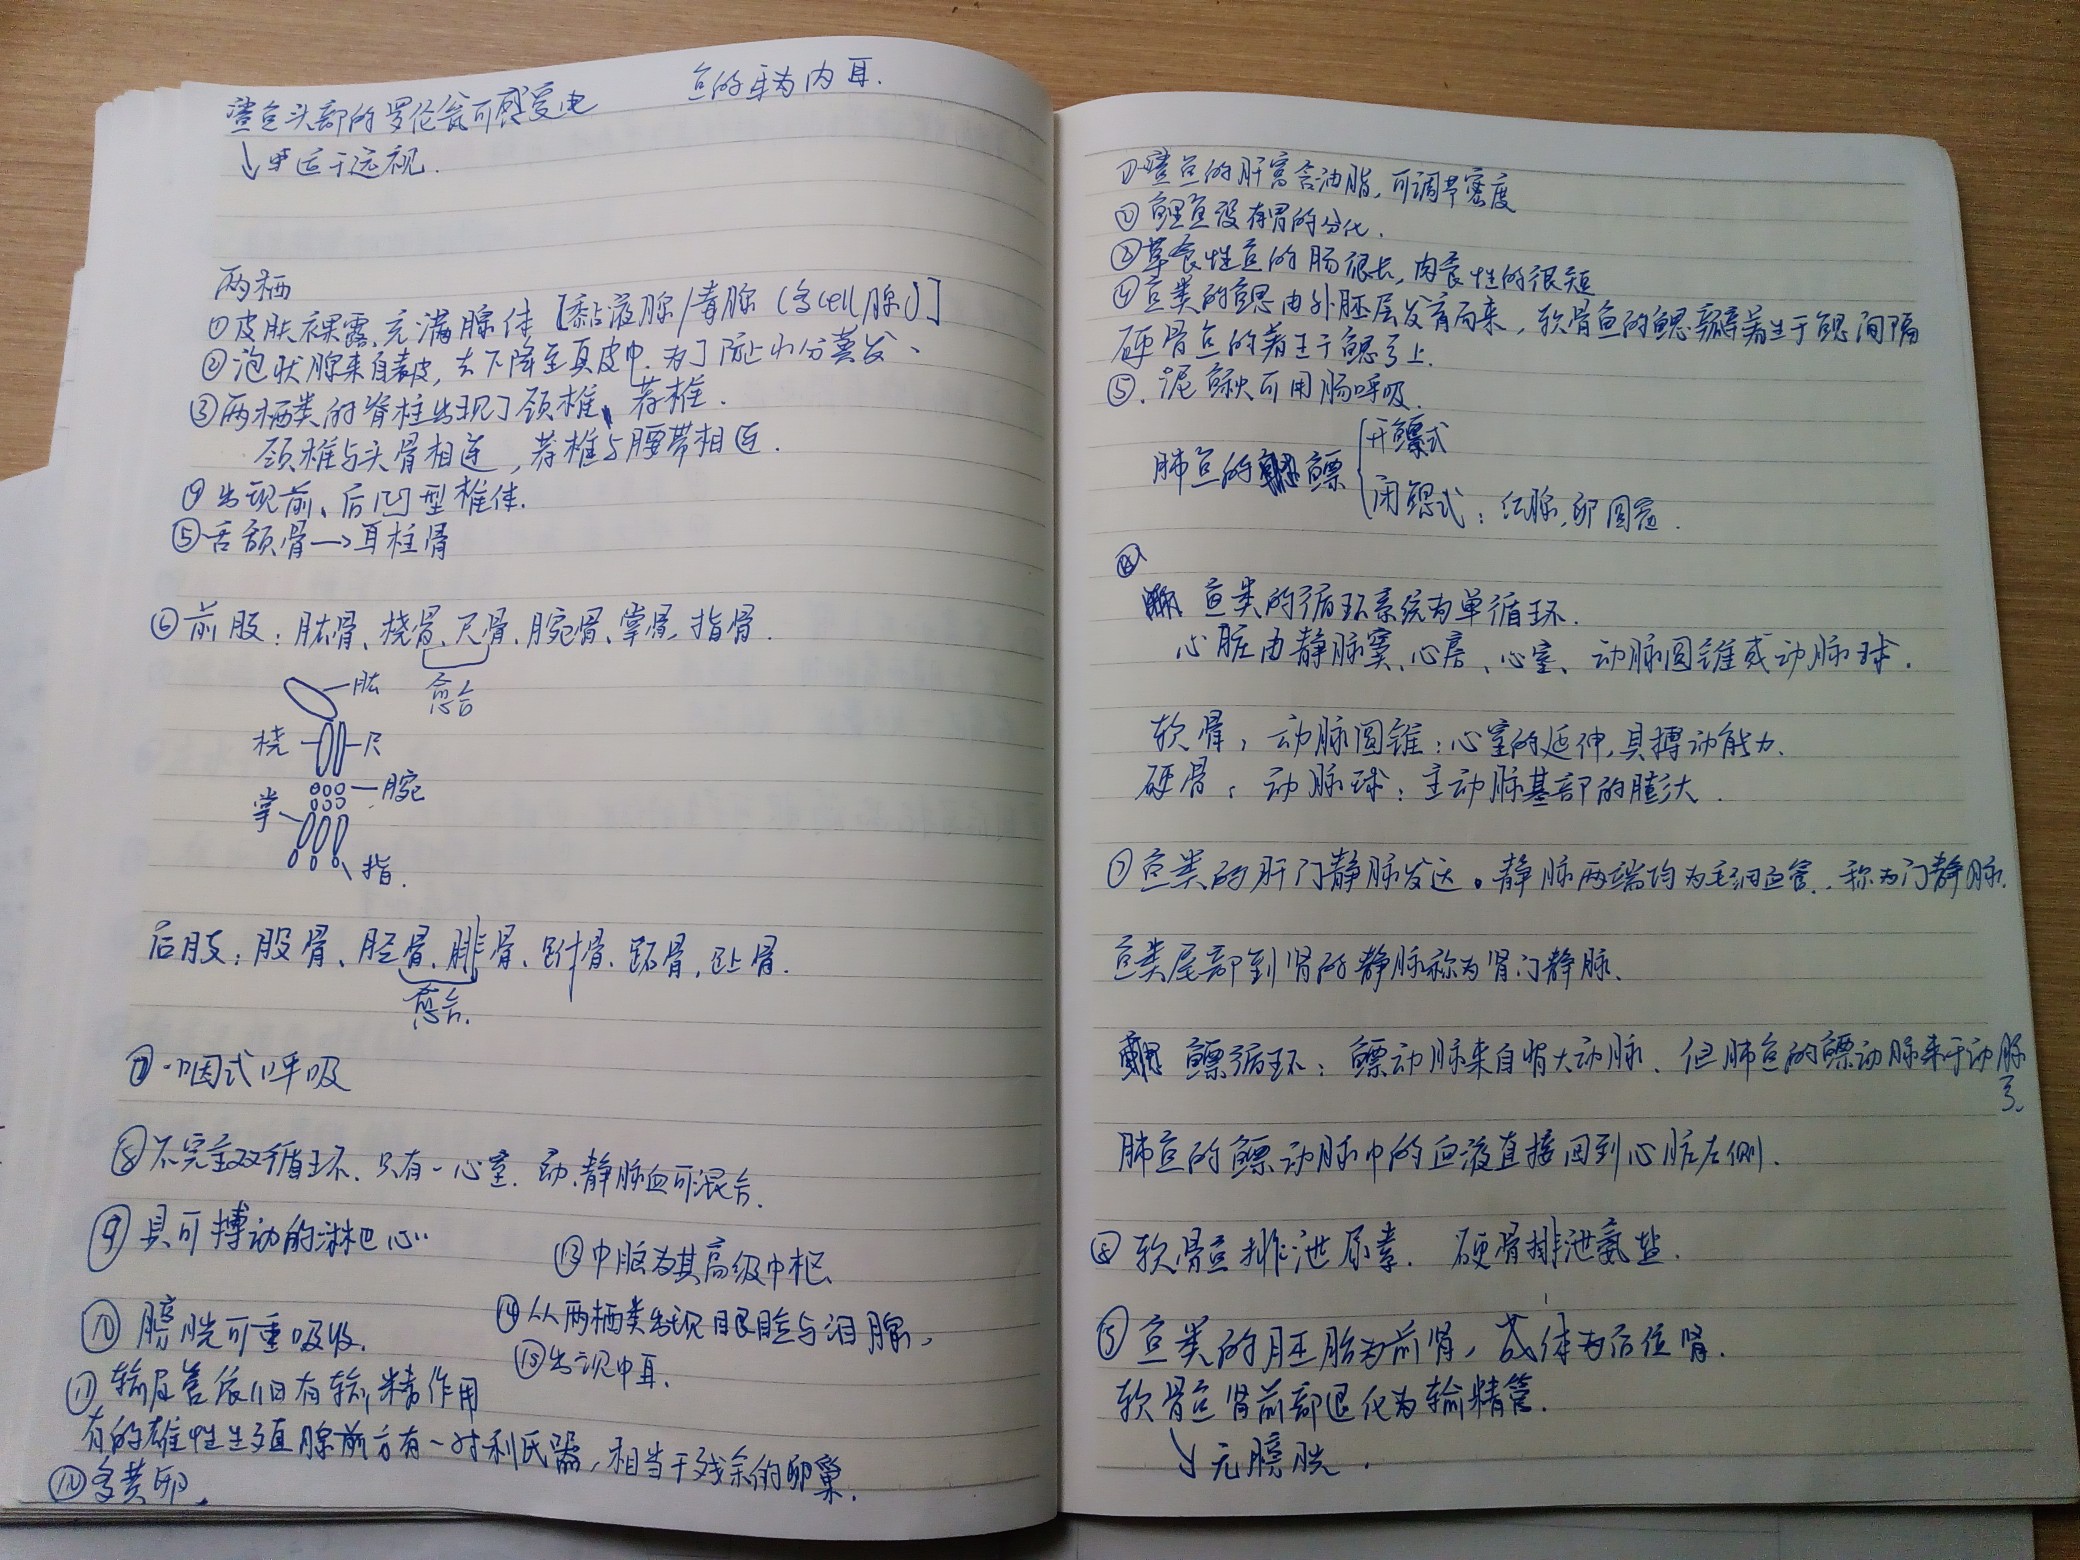 鲨鱼头部的罗伦瓮可感受电
鱼的耳为内耳.
适于远视.
两栖
①皮肤裸露,充满腺体【黏液腺/毒腺(多cell腺)】
②泡状腺来自表皮,去下降至真皮中.为了防止水分蒸发、
③两栖类的脊柱出现了颈椎、荐椎.
颈椎与头骨相连,荐椎与腰带相连.
④出现前、后凹型椎体.
⑤舌颌骨→耳柱骨
⑥前肢:肱骨、桡骨、尺骨、腕骨、掌骨、指骨.
愈合
肱
桡
尺
腕
掌
指.
后肢:股骨、胫骨、腓骨、跗骨、跖骨,趾骨.
愈合.
⑦咽式呼吸
⑧不完全双循环.只有一心室.动、静脉血可混合.
⑨具可搏动的淋巴心
⑩膀胱可重吸收.
⑪输尿管依旧有输精作用
有的雄性生殖腺前方有一对利氏器,相当于残余的卵巢.
⑫多黄卵.
⑬中脑为其高级中枢
⑭从两栖类出现眼睑与泪腺,
⑮出现中耳.
①鲨鱼的肝富含油脂,可调节密度
②鲤鱼没有胃的分化.
③草食性鱼的肠很长,肉食性的很短
④鱼类的鳃由外胚层发育而来,软骨鱼的鳃瓣着生于鳃间隔
硬骨鱼的着生于鳃弓上.
⑤.泥鳅可用肠呼吸.
肺鱼的鳔
开鳔式
闭鳔式:红腺,卵圆窗.
⑥
鱼类的循环系统为单循环.
心脏由静脉窦、心房、心室、动脉圆锥或动脉球.
软骨,动脉圆锥:心室的延伸,具搏动能力.
硬骨,动脉球:主动脉基部的膨大.
⑦鱼类的肝门静脉发达。静脉两端均为毛细血管.称为门静脉.
鱼类尾部到肾的静脉称为肾门静脉.
鳔循环:鳔动脉来自背大动脉、但肺鱼的鳔动脉来于动脉
弓.
肺鱼的鳔动脉中的血液直接回到心脏左侧.
⑧软骨鱼排泄尿素.硬骨排泄氨盐.
⑨鱼类的胚胎为前肾,成体为后位肾.
软骨鱼肾前部退化为输精管.
↓无膀胱.